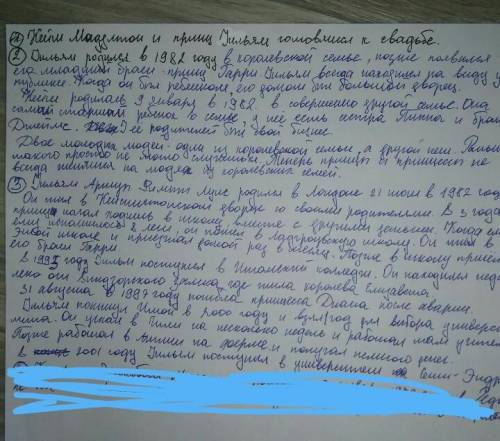 ① Кейт Мидэлтон и принц Уильям готовились к свадьбе.
② Уильям родился в 1982 году в королевской семье, позже появился
его младший брат принц Гарри. Уильям всегда находился на виду у
публики. Когда он был ребенком, его домом был большой дворец.
Кейт родилась 9 января в 1982 в совершенно другой семье. Она
самый старший ребенок в семье, у неё есть сестра Пиппа и брат
Джеймс. У её родителей был свой бизнес.
Двое молодых людей: один из королевской семьи, а другой нет. Раньше
такого просто не могло случиться. Теперь принцы и принцессы не
всегда женятся на людях из королевских семей.
③ Уильям Артур Филипп Луис родился в Лондоне 21 июня в 1982 году
Он жил в Кенсингтонском дворце со своими родителями. В 3 года
принц начал ходить в школу вместе с другими детьми. Когда ему
исполнилось 8 лет, он пошёл в школу. Он жил в
этой школе и приезжал домой раз в месяц. Позже в школу пришёл
его брат Гарри.
В 1995 году Уильям поступил в Итонский колледж. Он находился недалеко
от Виндзорского замка, где жила королева Елизавета.
31 августа в 1997 году погибла принцесса Диана после аварии.
Уильям покинул Итон в 2000 году и взял год для выбора университета.
Он уехал в Чили на несколько недель и работал там учителем.
Позже работал в Англии на ферме и получал немного денег.
В 2001 году Уильям поступил в университет Сент-Эндрю